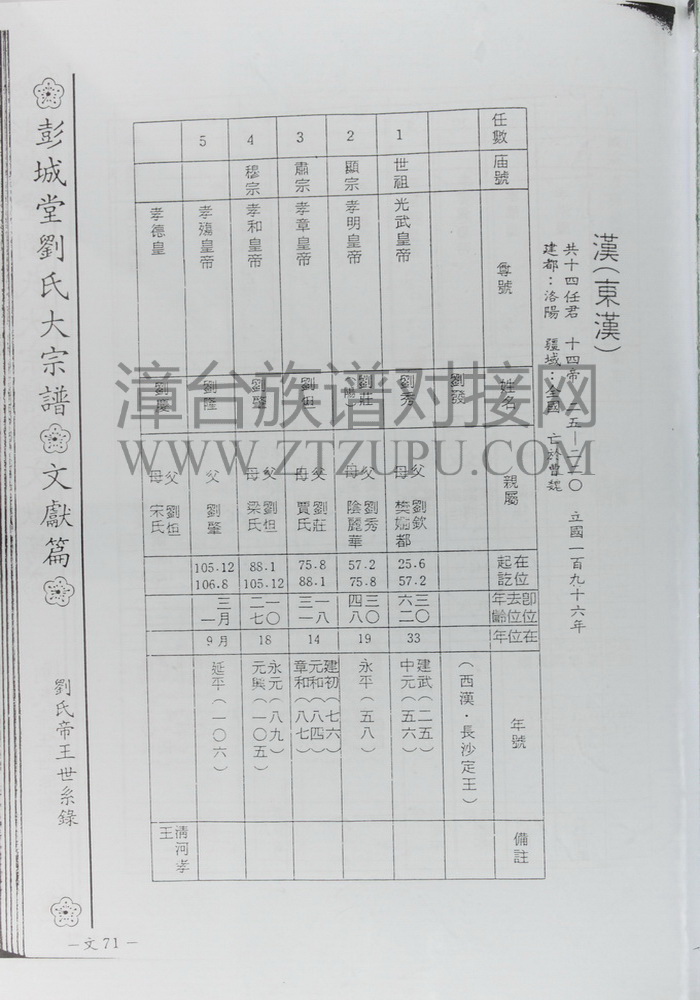 漢(東漢)
共十四任君 十四帝 二五—二二〇 立國一百九十六年
建都：洛陽 疆域：全國 亡於曹魏
任數 廟號 尊號 姓名 親屬 在位起訖 即位去位年齡 在位年 年號 備註
劉發 (西漢・長沙定王)
1 世祖 光武皇帝 劉秀 父 劉欽 母 樊嫺都 25.6 57.2 三〇 六二 33 建武(二五) 中元(五六)
2 顯宗 孝明皇帝 劉莊 父 劉秀 母 陰麗華 57.2 75.8 三〇 四八 19 永平(五八)
3 肅宗 孝章皇帝 劉炟 父 劉莊 母 賈氏 75.8 88.1 一八 三一 14 建初(七六) 元和(八四) 章和(八七)
4 穆宗 孝和皇帝 劉肇 父 劉炟 母 梁氏 88.1 105.12 一〇 二七 18 永元(八九) 元興(一〇五)
5 孝殤皇帝 劉隆 父 劉肇 105.12 106.8 三月 一 9月 延平(一〇六)
孝德皇 劉慶 父 劉炟 母 宋氏 清河孝王
彭城堂劉氏大宗譜 文獻篇 劉氏帝王世系錄
—文71—
漳台族谱对接网
WWW.ZTZUPU.COM